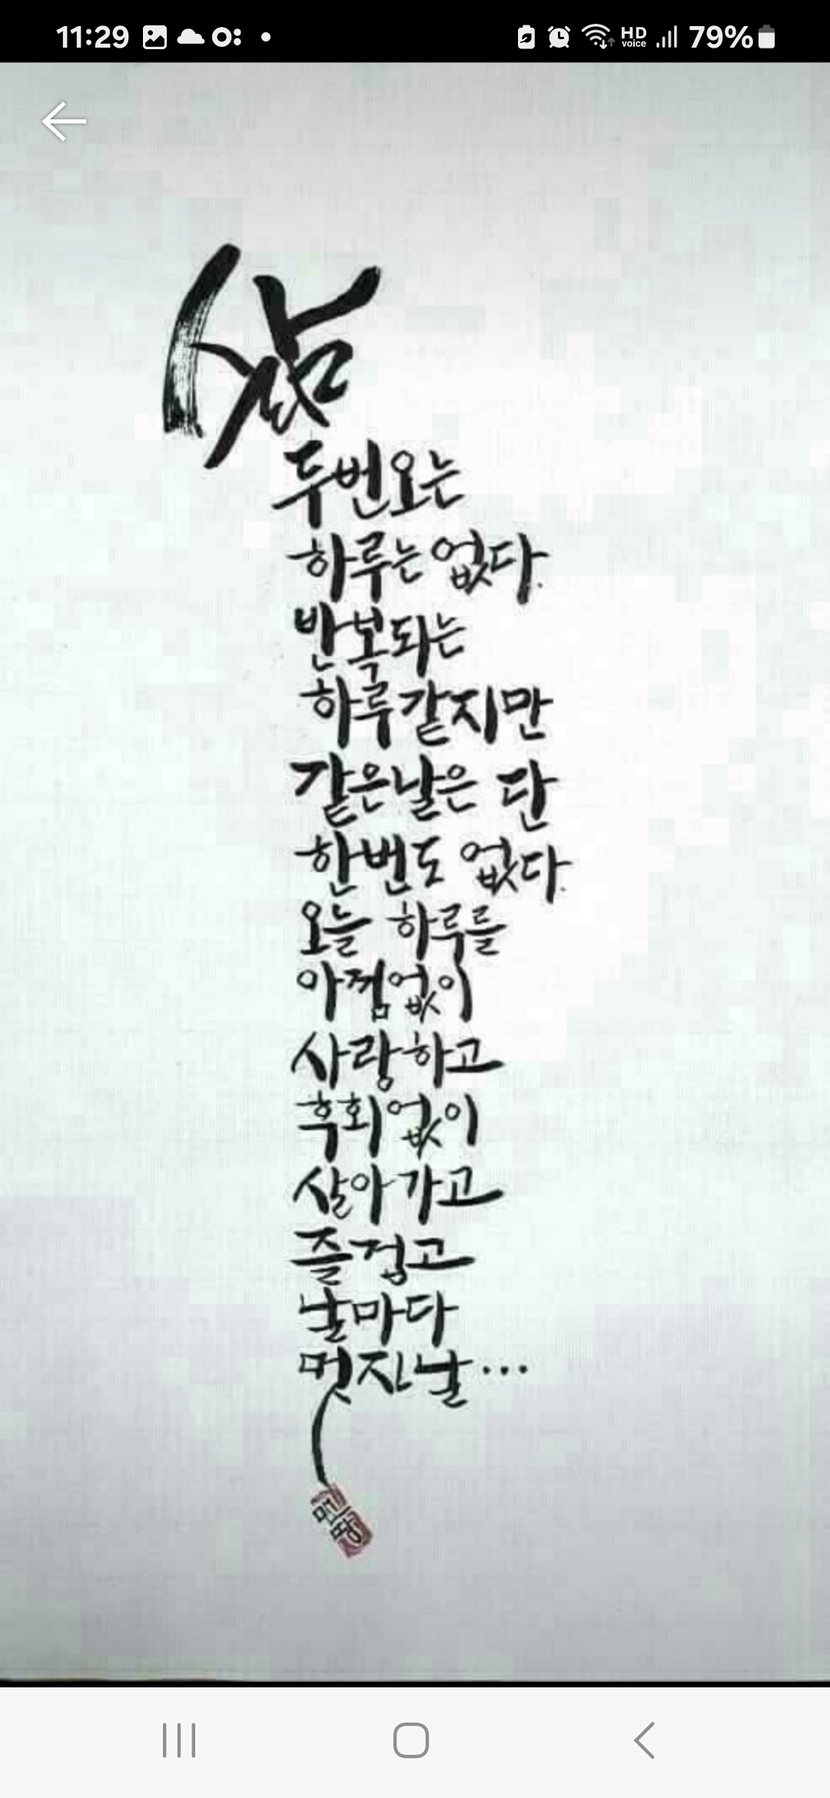 11:29
HD voice 79%
삶
두번오는
하루는 없다.
반복되는
하루같지만
같은날은 단
한번도 없다.
오늘 하루를
아낌없이
사랑하고
후회없이
살아가고
즐겁고
날마다
멋진날...